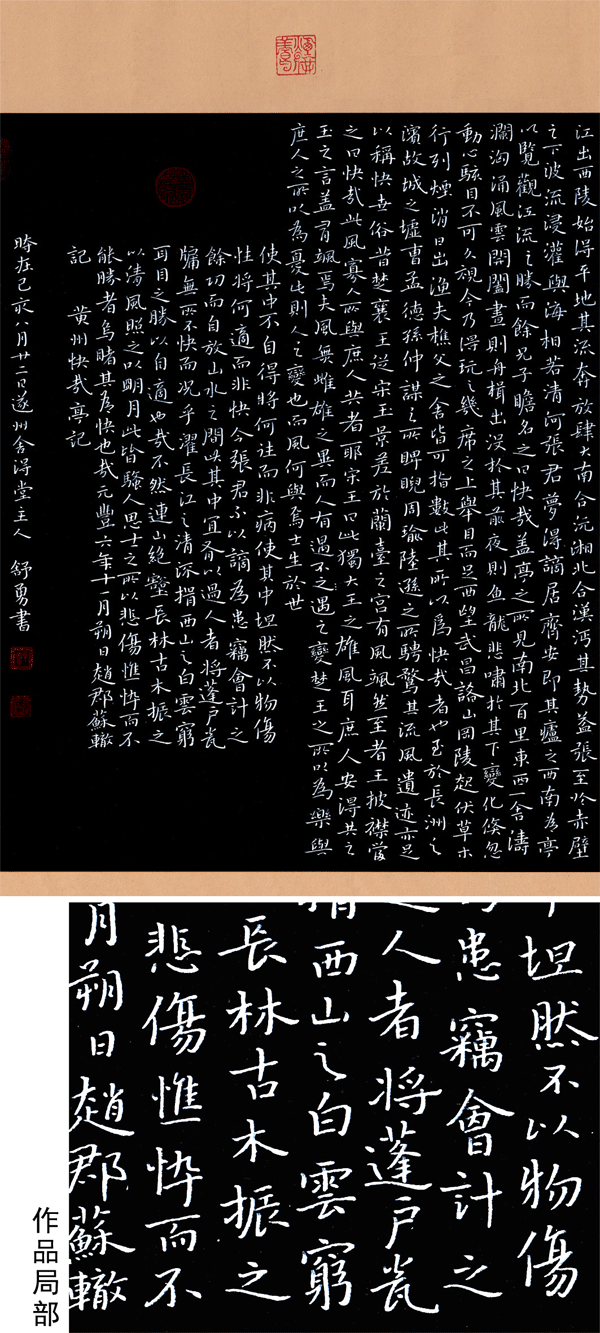 江出西陵始得平地其流奔放肆大南合沅湘北合漢沔其勢益張至於赤壁
之下波流浸灌與海相若清河張君夢得謫居齊安即其廬之西南為亭
以覽觀江流之勝而餘兄子瞻名之曰快哉盖亭之所見南北百里東西一舍濤
瀾洶涌風雲開闔晝則舟楫出沒於其前夜則魚龍悲嘯於其下變化倏忽
動心駭目不可久視今乃得玩之幾席之上舉目而足西望武昌諸山岡陵起伏草木
行列煙消日出漁夫樵父之舍皆可指數此其所以為快哉者也至於長洲之
濱故城之墟曹孟德孫仲謀之所睥睨周瑜陸遜之所騁騖其流風遺迹亦足
以稱快世俗昔楚襄王從宋玉景差於蘭臺之宮有風颯然至者王披襟當
之曰快哉此風寡人所與庶人共者耶宋玉曰此獨大王之雄風耳庶人安得共之
玉之言盖有颯焉夫風無雌雄之異而人有遇不之遇之變楚王之所以為樂與
庶人之所以為憂此則人之變也而風何與焉士生於世
使其中不自得將何往而非病使其中坦然不以物傷
性將何適而非快今張君不以謫為患竊會計之
餘功而自放山水之間此其中宜有以過人者將蓬戶瓮
牖無所不快而況乎濯長江之清流揖西山之白雲窮
耳目之勝以自適也哉不然連山絕壑長林古木振之
以清風照之以明月此皆騷人思士之所以悲傷憔悴而不
能勝者烏睹其為快也哉元豐六年十一月朔日趙郡蘇轍
記 黃州快哉亭記
時在己亥八月廿二日遂州舍得堂主人 舒勇書
坦然不以物傷
患竊會計之
人者將蓬戶瓮
揖西山之白雲窮
長林古木振之
悲傷憔悴而不
月朔日趙郡蘇轍
作品局部